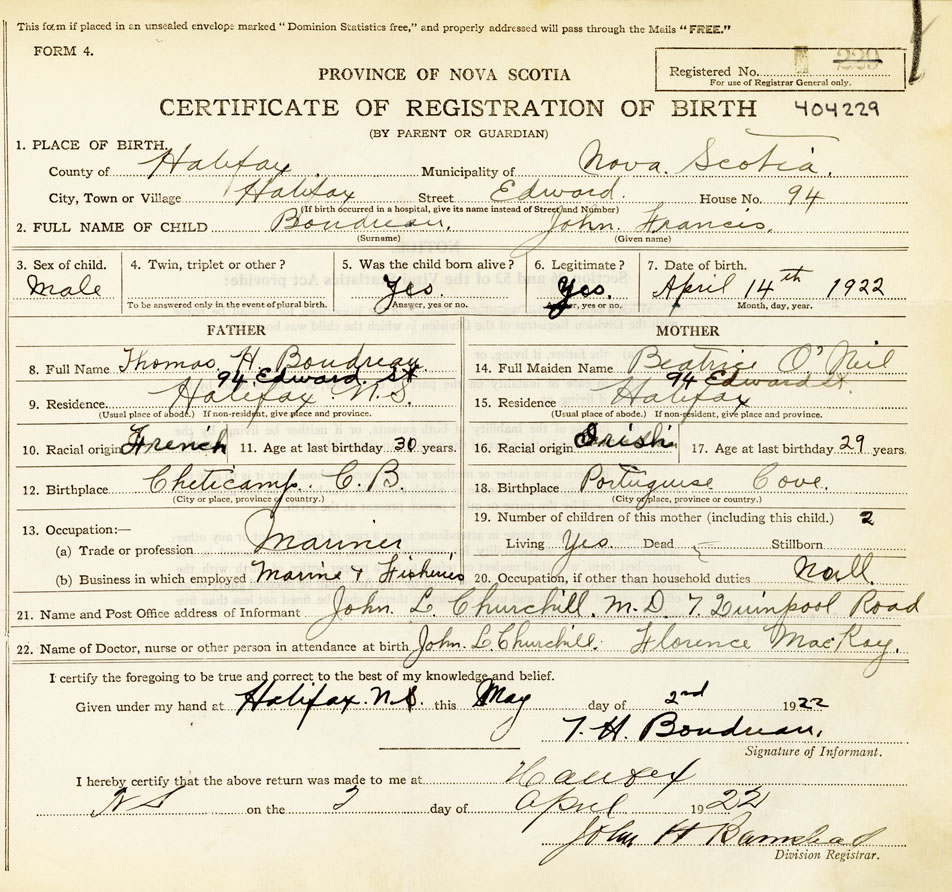 This form if placed in an unsealed envelope marked "Dominion Statistics free," and properly addressed will pass through the Mails "FREE."
FORM 4.
PROVINCE OF NOVA SCOTIA
Registered No. 229
For use of Registrar General only.
CERTIFICATE OF REGISTRATION OF BIRTH 404229
(BY PARENT OR GUARDIAN)
1. PLACE OF BIRTH.
County of Halifax Municipality of Nova Scotia.
City, Town or Village Halifax Street Edward. House No. 94
(If birth occurred in a hospital, give its name instead of Street and Number)
2. FULL NAME OF CHILD Boudreau, John Francis.
(Surname) (Given name)
3. Sex of child. 4. Twin, triplet or other? 5. Was the child born alive? 6. Legitimate? 7. Date of birth.
Male Yes. Yes. April 14th 1922
To be answered only in the event of plural birth. Answer, yes or no. Answer, yes or no. Month, day, year.
FATHER MOTHER
8. Full Name Thomas H Boudreau 14. Full Maiden Name Beatrice O'Neil
94 Edward St 94 Edward st.
9. Residence Halifax N.S. 15. Residence Halifax
(Usual place of abode.) If non-resident, give place and province. (Usual place of abode.) If non-resident, give place and province.
10. Racial origin French 11. Age at last birthday 30 years. 16. Racial origin Irish 17. Age at last birthday 29 years.
12. Birthplace Cheticamp. C.B. 18. Birthplace Portuguise Cove.
(City or place, province or country.) (City or place, province or country.)
13. Occupation:— 19. Number of children of this mother (including this child.) 2
(a) Trade or profession Mariner Living Yes. Dead Stillborn
(b) Business in which employed Marine & Fisheries 20. Occupation, if other than household duties
21. Name and Post Office address of Informant John L Churchill. M.D 7. Quinpool Road
22. Name of Doctor, nurse or other person in attendance at birth John. L. Churchill. Florence MacKay.
I certify the foregoing to be true and correct to the best of my knowledge and belief.
Given under my hand at Halifax. N.S. this May day of 2nd 1922
T. H. Boudreau,
Signature of Informant.
I hereby certify that the above return was made to me at
NS on the day of April 1922
John H
Division Registrar.